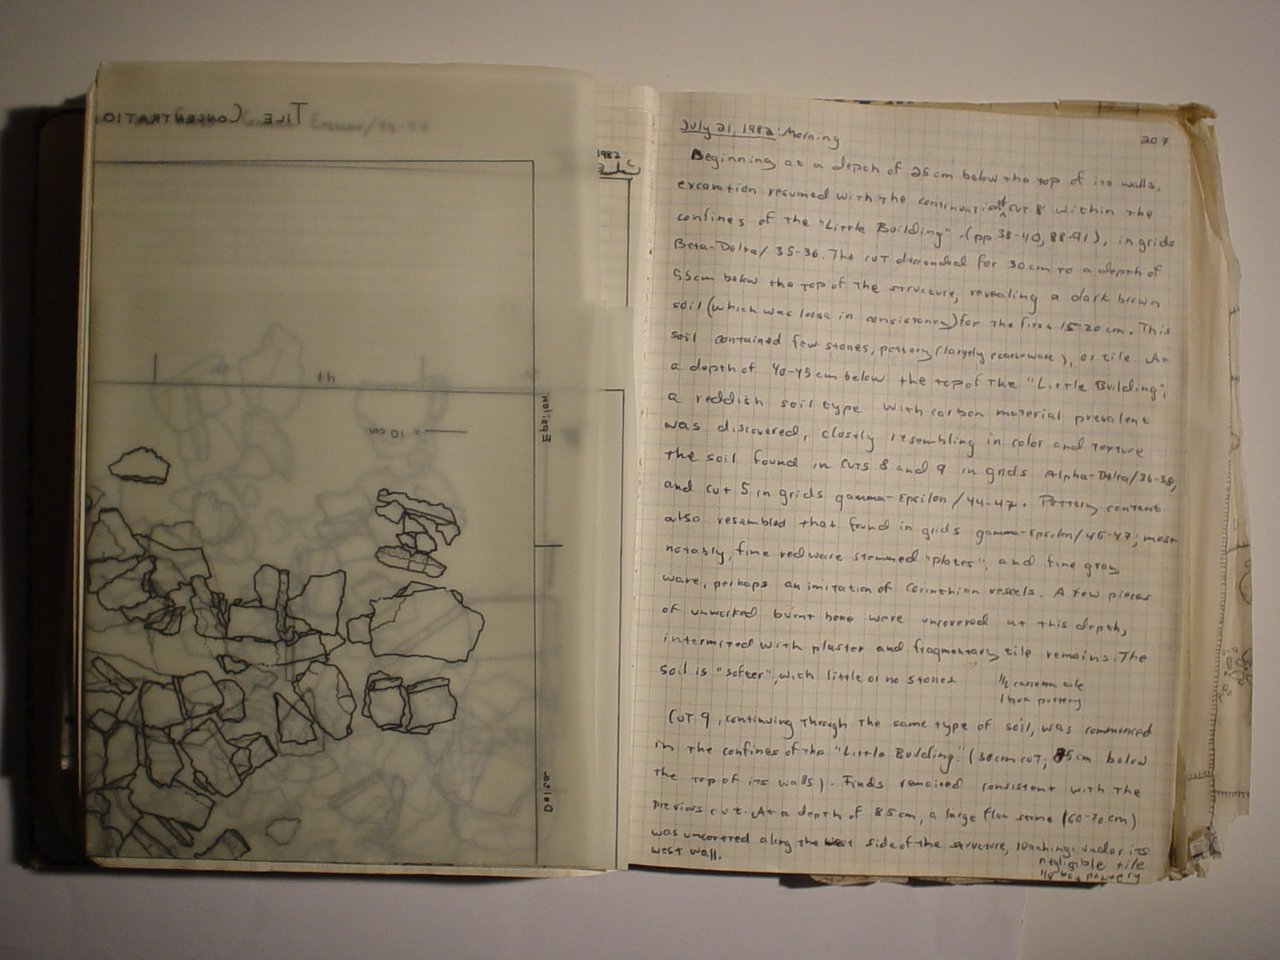 TILE CONCENTRATIO
1982
th
= 10 cm
Epsilon
Delta
July 21, 1982: Morning
207
Beginning at a depth of 25cm below the top of its walls,
excavation resumed with the continuation of cut 8 within the
confines of the "Little Building" (pp 38-40, 88-91), in grids
Beta-Delta/35-36. The cut descended for 30cm to a depth of
55cm below the top of the structure, revealing a dark brown
soil (which was loose in consistency) for the first 15-20cm. This
soil contained few stones, pottery (largely coarseware), or tile. At
a depth of 40-45cm below the top of the "Little Building",
a reddish soil type with carbon material prevalent
was discovered, closely resembling in color and texture
the soil found in cuts 8 and 9 in grids Alpha-Delta/36-38,
and cut 5 in grids gamma-Epsilon/44-47. Pottery content
also resembled that found in grids gamma-Epsilon/45-47; most
notably, fine redware stemmed "plates", and fine gray
ware, perhaps an imitation of Corinthian vessels. A few pieces
of unworked burnt bone were uncovered at this depth,
intermixed with plaster and fragmentary tile remains. The
soil is "softer", with little or no stones.
1/2 cassetta tile
1 box pottery
Cut 9, continuing through the same type of soil, was commenced
in the confines of the "Little Building" (30cm cut; 85cm below
the top of its walls). Finds remained consistent with the
previous cut. At a depth of 85cm, a large flat stone (60-70cm)
was uncovered along the west side of the structure, reaching under its
west wall.
negligible tile
box pottery